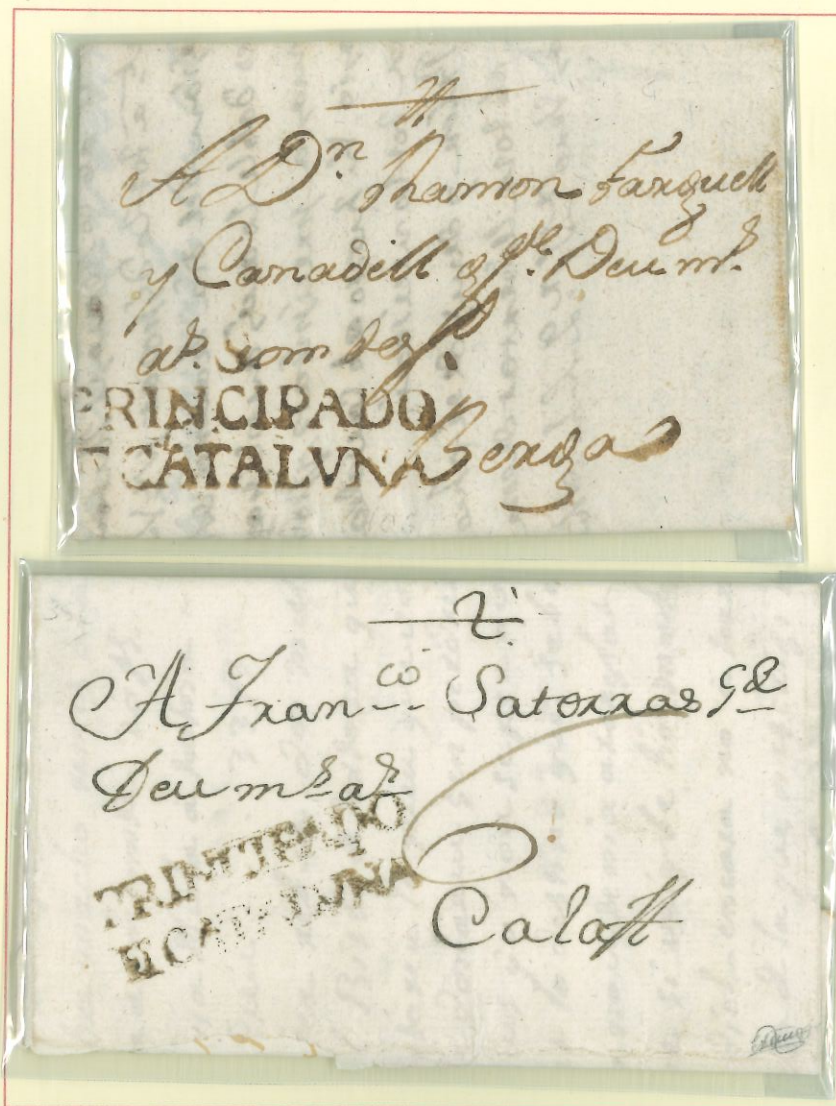 A Dn. Ramon Farguell
y Canadell q Dios Deu ms.
as. som
PRINCIPADO
E CATALVNA Berga
A Franco. Satorras Ge
Deu ms. as.
PRINCIPADO
E CATALVNA
6
Calaff